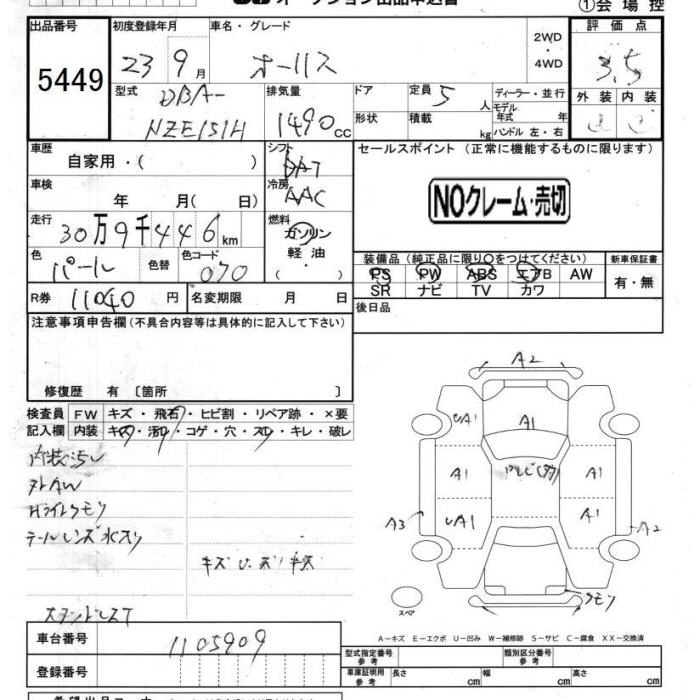 オークション出品申込書 ①会場控
出品番号 初度登録年月 車名・グレード 2WD・4WD 評価点
5449 23 9月 オーリス 3.5
型式 排気量 ドア 定員 5人 ディーラー・並行 外装 内装
DBA- 1490cc 形状 積載 kg モデル年式 年
NZE151H ハンドル 左・右
車歴 自家用・( ) シフト セールスポイント (正常に機能するものに限ります)
車検 年 月( 日) 冷房 AAC NOクレーム・売切
走行 30万9千446km 燃料 ガソリン
軽油・
色 パール 色替 色コード 070 装備品 (純正品に限り○をつけてください) 新車保証書
PS PW ABS エアB AW 有・無
SR ナビ TV カワ
R券 11040円 名変期限 月 日 後日品
注意事項申告欄 (不具合内容等は具体的に記入して下さい)
修復歴 有 〔箇所 〕
検査員 FW キズ・飛石・ヒビ割・リペア跡・×要
記入欄 内装 キズ・汚れ・コゲ・穴・スレ・キレ・破レ
内装汚レ
Hライトクモリ
テールレンズ水入り
A2
UA1 A1
A1 A1
UA1 A1
A3 A2
クモリ
スペア
A-キズ E-エクボ U-凹み W-補修跡 S-サビ C-腐食 XX-交換済
車台番号 1105909
登録番号
型式指定番号 参考 類別区分番号 参考
車庫証明用 参考 長さ cm 幅 cm 高さ cm